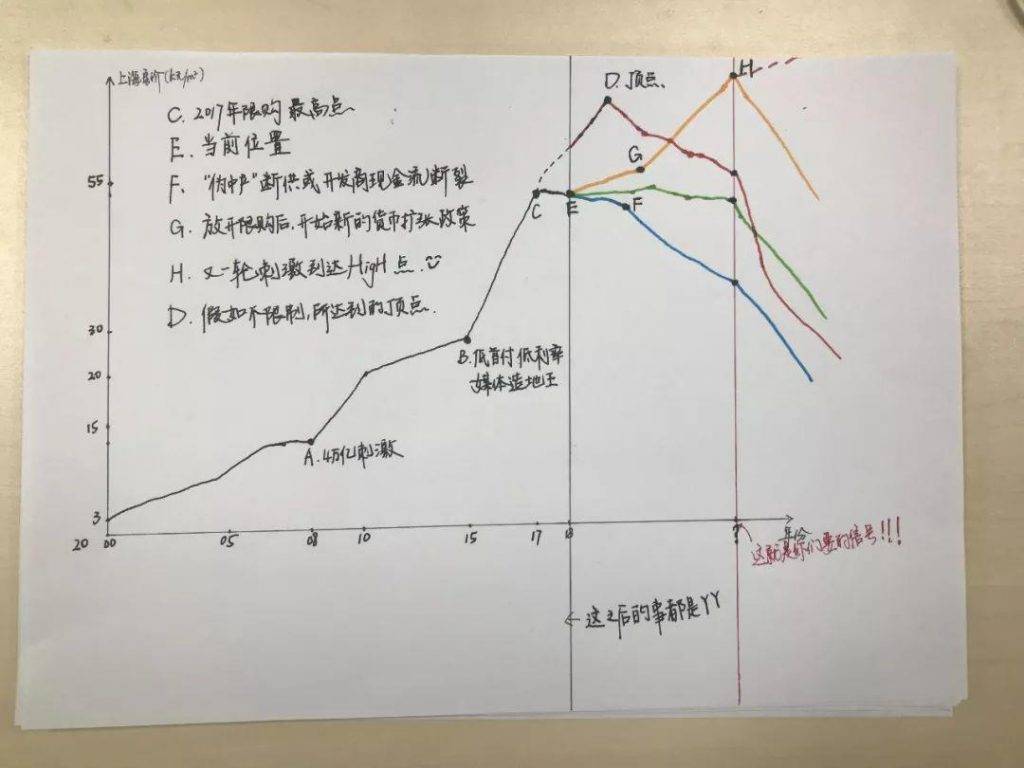 上海房价(kR/m²)
C. 2017年限购最高点
E. 当前位置
F. "伪中产"断供或开发商现金流断裂
G. 放开限购后,开始新的货币扩张政策
H. 又一轮刺激到达HigH点.
D. 假如不限制,所达到的顶点.
D. 顶点.
H
G
C
E
F
55
30
20
15
3
B. 低首付低利率
媒体造地王
A. 4万亿刺激
20 00
05
08
10
15
17
18
?
年份
这就是你们要的信号!!!
← 这之后的事都是YY